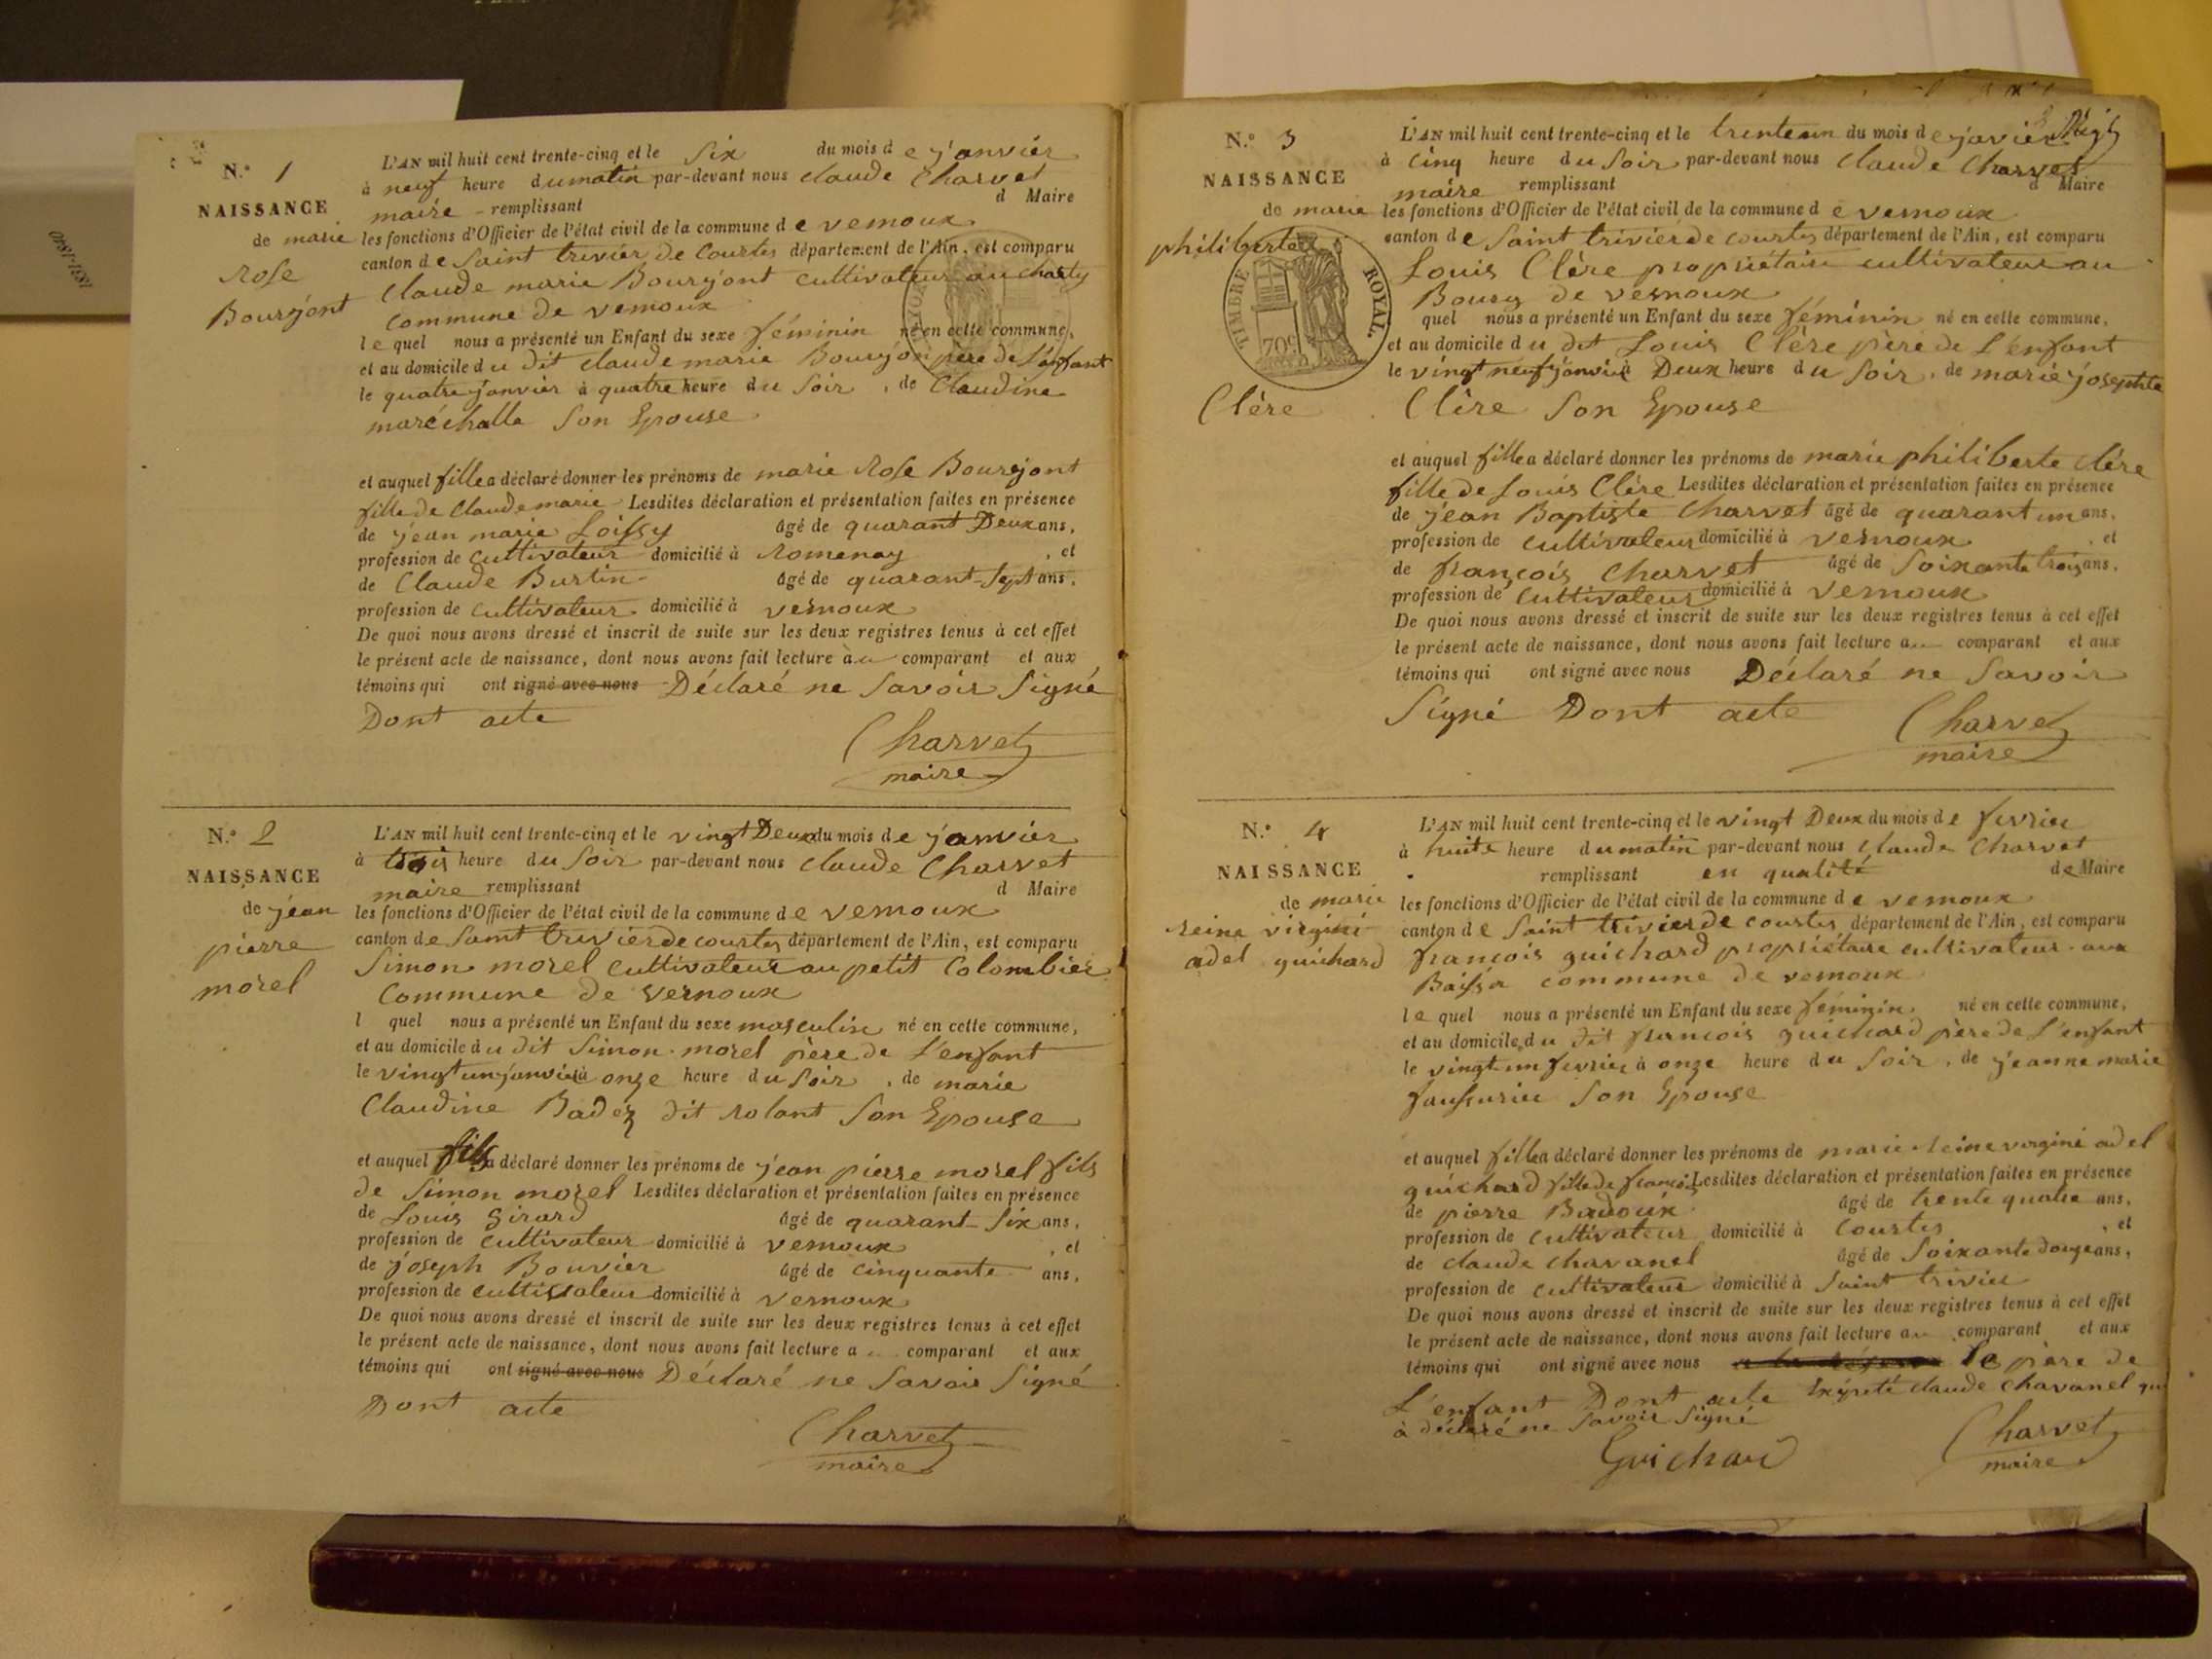 N.° 1
NAISSANCE
de marie
Rose
Bourgont
L'AN mil huit cent trente-cinq et le six du mois de janvier
à neuf heure du matin par-devant nous claude Charvet
maire remplissant d Maire
les fonctions d'Officier de l'état civil de la commune de vernoux
canton de Saint trivier de Courtes département de l'Ain, est comparu
Claude marie Bourgont cultivateur au
Commune de vernoux
lequel nous a présenté un Enfant du sexe féminin né en cette commune,
et au domicile du dit claude marie Bourgon père de l'enfant
le quatre janvier à quatre heure du Soir, de Claudine
maréchalle Son Epouse
et auquel fille a déclaré donner les prénoms de marie Rose Bourgont
fille de Claude marie Lesdites déclaration et présentation faites en présence
de jean marie Loissy âgé de quarant Deux ans,
profession de cultivateur domicilié à Romenay, et
de Claude Burtin âgé de quarant Sept ans,
profession de cultivateur domicilié à vernoux
De quoi nous avons dressé et inscrit de suite sur les deux registres tenus à cet effet
le présent acte de naissance, dont nous avons fait lecture au comparant et aux
témoins qui ont signé avec nous Déclaré ne Savoir Signé
Dont acte
Charvet
maire
N.° 2
NAISSANCE
de jean
pierre
morel
L'AN mil huit cent trente-cinq et le vingt Deux du mois de janvier
à trois heure du Soir par-devant nous claude Charvet
maire remplissant d Maire
les fonctions d'Officier de l'état civil de la commune de vernoux
canton de Saint trivier de courtes département de l'Ain, est comparu
Simon morel cultivateur au petit Colombier
Commune de vernoux
l quel nous a présenté un Enfant du sexe masculin né en cette commune,
et au domicile du dit Simon morel père de L'enfant
le vingt un janvier à onze heure du Soir, de marie
Claudine Badez dit rolant Son Epouse
et auquel fils a déclaré donner les prénoms de jean pierre morel fils
de Simon morel Lesdites déclaration et présentation faites en présence
de Louis Girard âgé de quarant Six ans,
profession de cultivateur domicilié à vernoux, et
de joseph Bouvier âgé de cinquante ans,
profession de cultivateur domicilié à vernoux
De quoi nous avons dressé et inscrit de suite sur les deux registres tenus à cet effet
le présent acte de naissance, dont nous avons fait lecture a comparant et aux
témoins qui ont signé avec nous Déclaré ne Savoir Signé
Dont acte
Charvet
maire
N.° 3
NAISSANCE
de marie
philiberte
TIMBRE ROYAL.
70c
Clère
L'AN mil huit cent trente-cinq et le trente un du mois de javier
à cinq heure du Soir par-devant nous Claude Charvet
maire remplissant d Maire
les fonctions d'Officier de l'état civil de la commune de vernoux
canton de Saint trivier de courtes département de l'Ain, est comparu
Louis Clère propriétaire cultivateur au
Bourg de vernoux
quel nous a présenté un Enfant du sexe féminin né en cette commune,
et au domicile du dit Louis Clère père de L'enfant
le vingt neuf janvier à Deux heure du Soir, de marie josephte
Clère Son Epouse
et auquel fille a déclaré donner les prénoms de marie philiberte clère
fille de Louis Clère Lesdites déclaration et présentation faites en présence
de jean Baptiste Charvet âgé de quarant un ans,
profession de cultivateur domicilié à vernoux, et
de françois Charvet âgé de Soixante trois ans,
profession de cultivateur domicilié à vernoux
De quoi nous avons dressé et inscrit de suite sur les deux registres tenus à cet effet
le présent acte de naissance, dont nous avons fait lecture au comparant et aux
témoins qui ont signé avec nous Déclaré ne Savoir
Signé Dont acte
Charvet
maire
N.° 4
NAISSANCE
de marie
reine virginie
adel guichard
L'AN mil huit cent trente-cinq et le vingt Deux du mois de fevrier
à huite heure du matin par-devant nous claude Charvet
remplissant en qualité de Maire
les fonctions d'Officier de l'état civil de la commune de vernoux
canton de Saint trivier de courtes département de l'Ain, est comparu
françois guichard propriétaire cultivateur aux
commune de vernoux
lequel nous a présenté un Enfant du sexe féminin né en cette commune,
et au domicile du dit francois guichard père de L'enfant
le vingt un fevrier à onze heure du Soir, de jeanne marie
Son Epouse
et auquel fille a déclaré donner les prénoms de marie reine virginie adel
guichard fille de françois Lesdites déclaration et présentation faites en présence
de pierre Badoux âgé de trente quatre ans,
profession de cultivateur domicilié à Courtes, et
de claude chavanel âgé de Soixante douze ans,
profession de cultivateur domicilié à Saint trivier
De quoi nous avons dressé et inscrit de suite sur les deux registres tenus à cet effet
le présent acte de naissance, dont nous avons fait lecture au comparant et aux
témoins qui ont signé avec nous le père de
L'enfant Dont acte Exepté claude chavanel qui
a déclaré ne Savoir Signé
Guichard
Charvet
maire